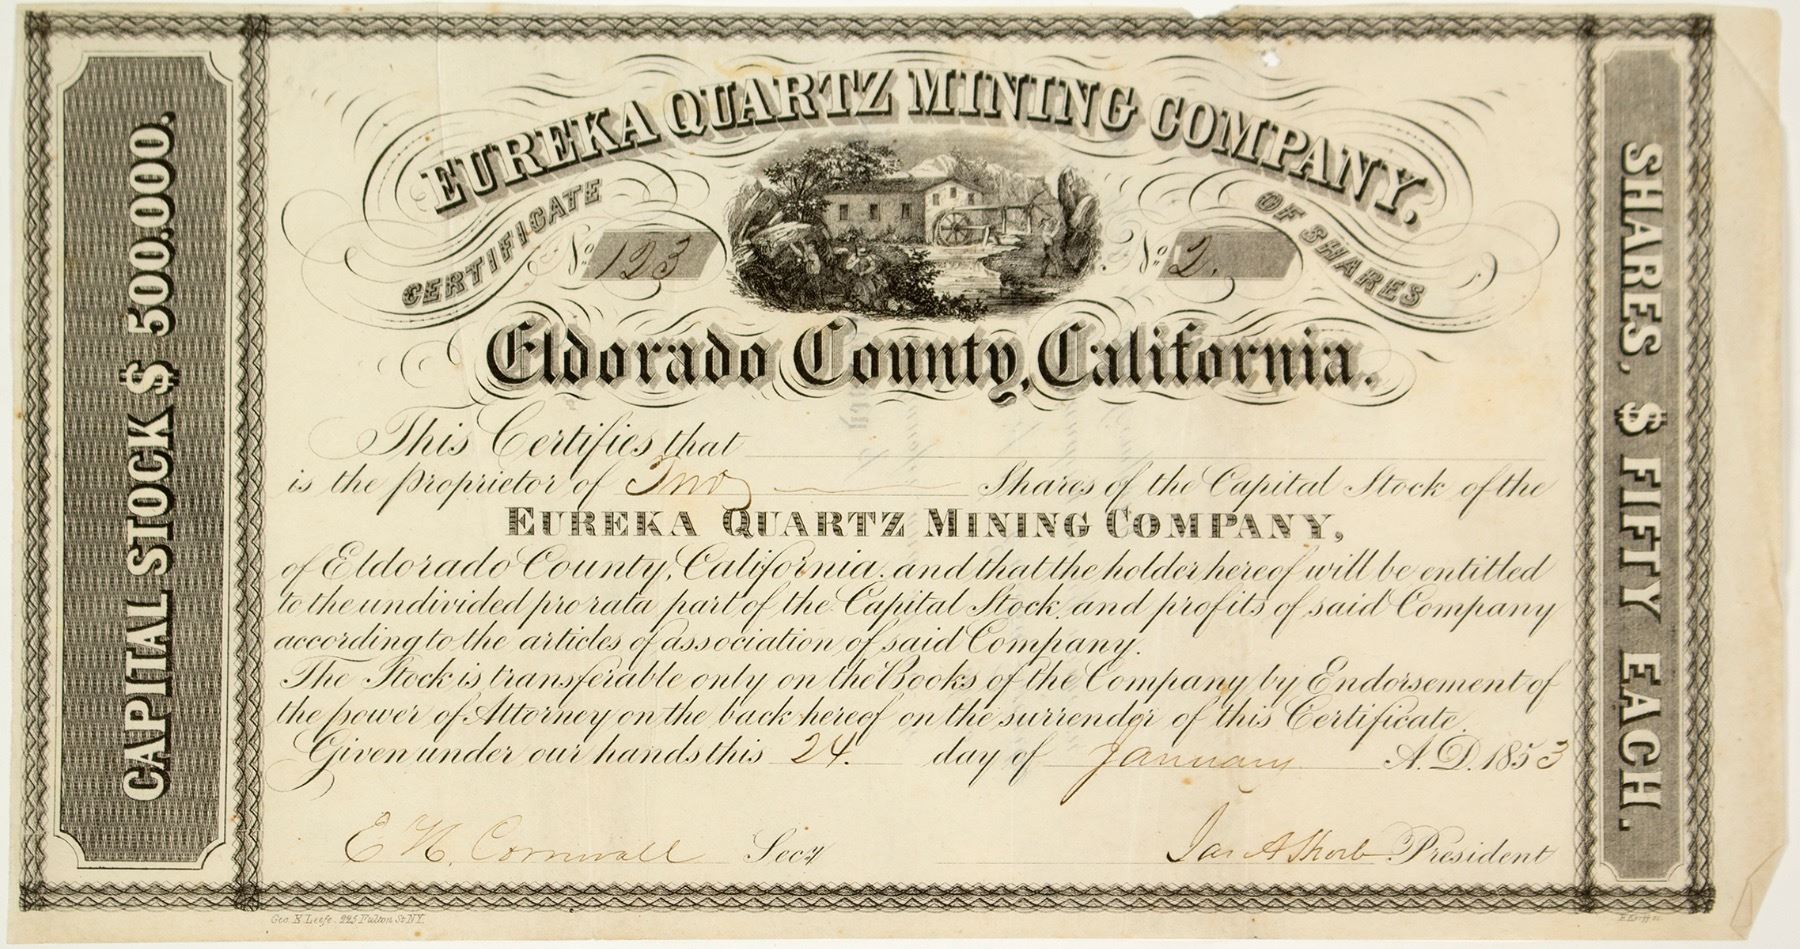 EUREKA QUARTZ MINING COMPANY,
CERTIFICATE OF SHARES
No. 123
No. 2.
Eldorado County, California.
CAPITAL STOCK $ 500.000.
SHARES, $ FIFTY EACH.
This Certifies that
is the proprietor of Two Shares of the Capital Stock of the
EUREKA QUARTZ MINING COMPANY,
of Eldorado County, California. and that the holder hereof will be entitled
to the undivided pro rata part of the Capital Stock and profits of said Company
according to the articles of association of said Company.
The Stock is transferable only on the Books of the Company by Endorsement of
the power of Attorney on the back hereof on the surrender of this Certificate.
Given under our hands this 24. day of January A.D. 1853
E N. Cornwall Secy
Jas A Shorb President
Geo. E Leefe. 225 Fulton St NY.